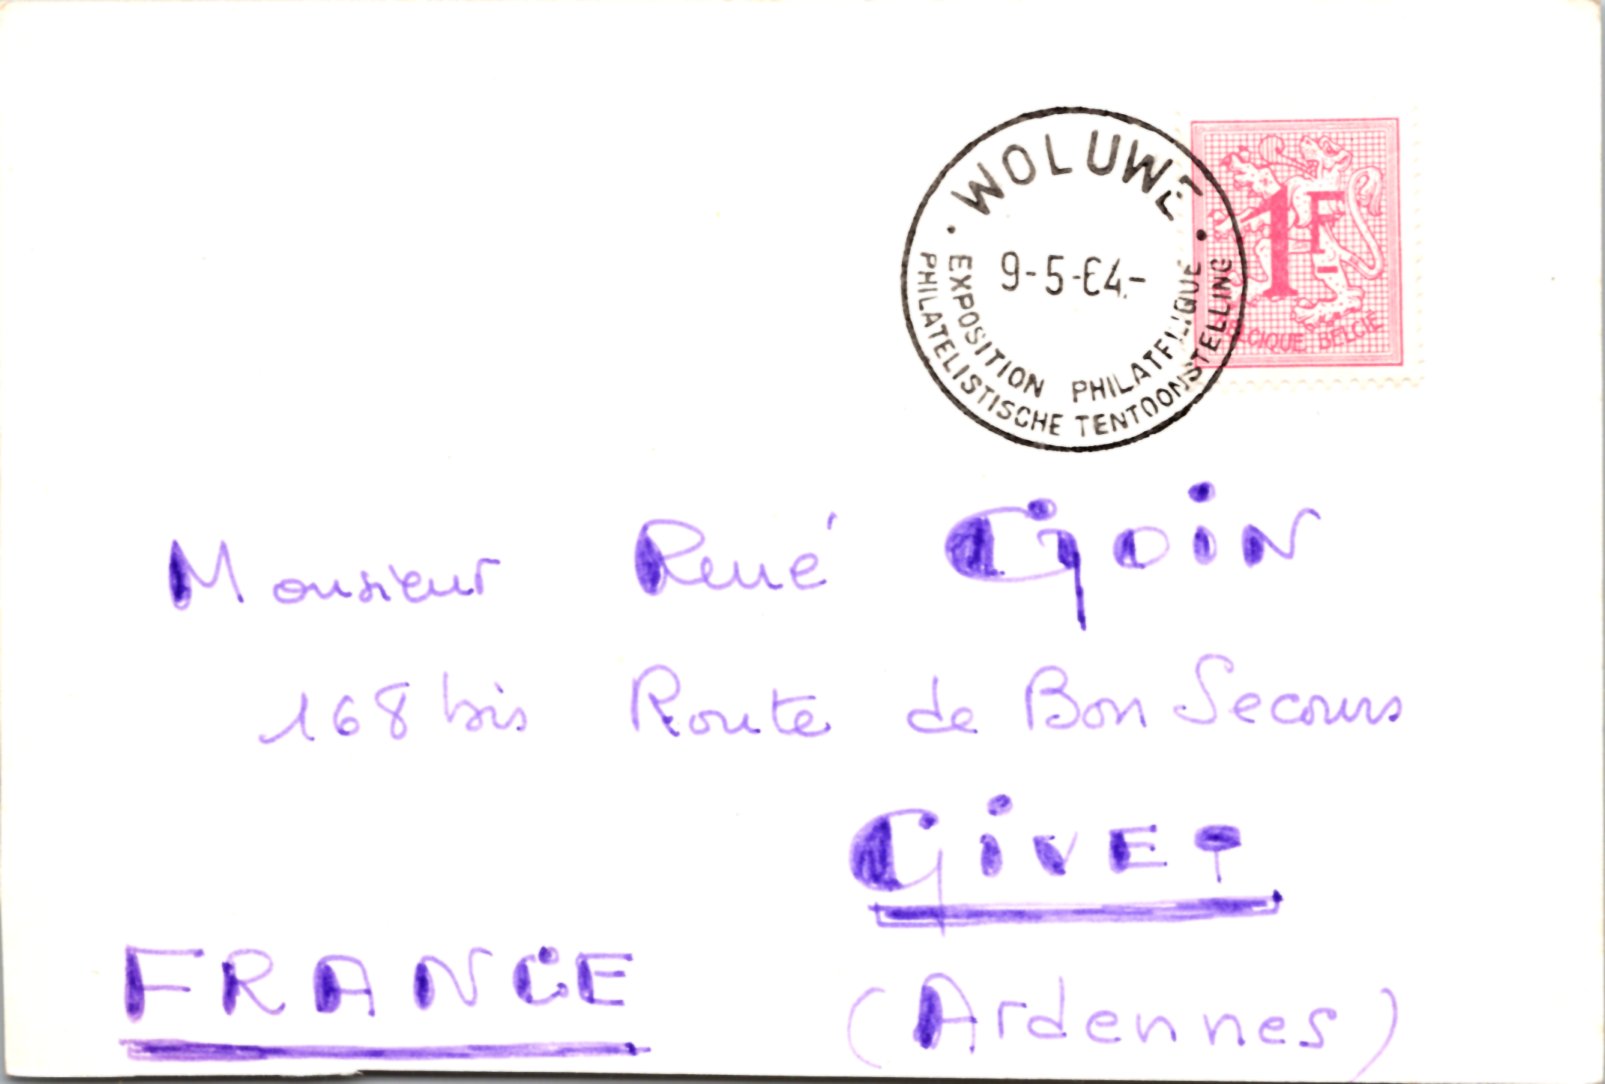 WOLUWE
9-5-64.-
EXPOSITION PHILATELIQUE
PHILATELISTISCHE TENTOONSTELLING
1F
BELGIQUE BELGIË
Monsieur René GOIN
168 bis Route de Bon Secours
GIVET
FRANCE
(Ardennes)